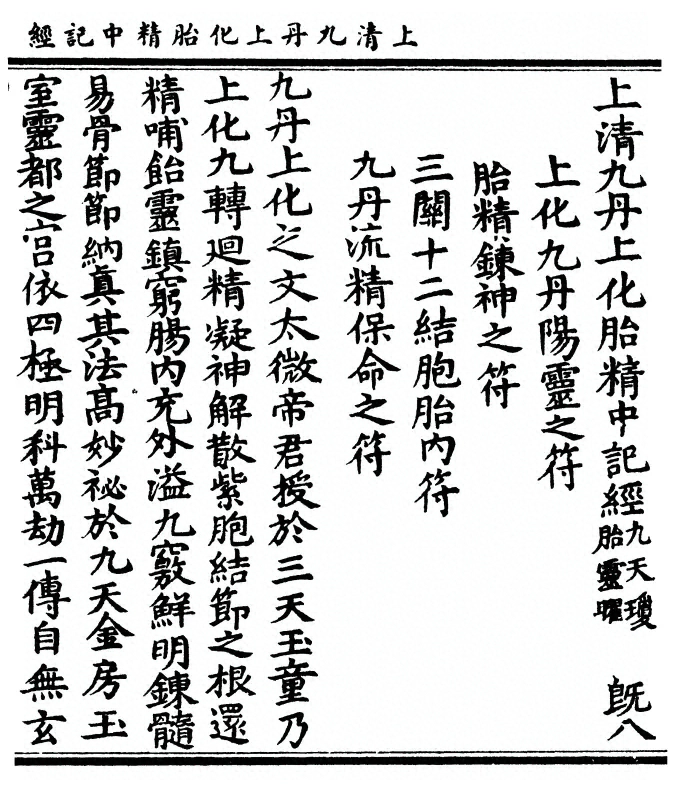 上清九丹上化胎精中記經
上清九丹上化胎精中記經九天瓊胎靈曜 旣八
上化九丹陽靈之符
胎精鍊神之符
三關十二結胞胎內符
九丹流精保命之符
九丹上化之文太微帝君授於三天玉童乃
上化九轉迴精凝神解散紫胞結節之根還
精哺飴靈鎮窮腸內充外溢九竅鮮明鍊髓
易骨節節納真其法高妙祕於九天金房玉
室靈都之宮依四極明科萬劫一傳自無玄